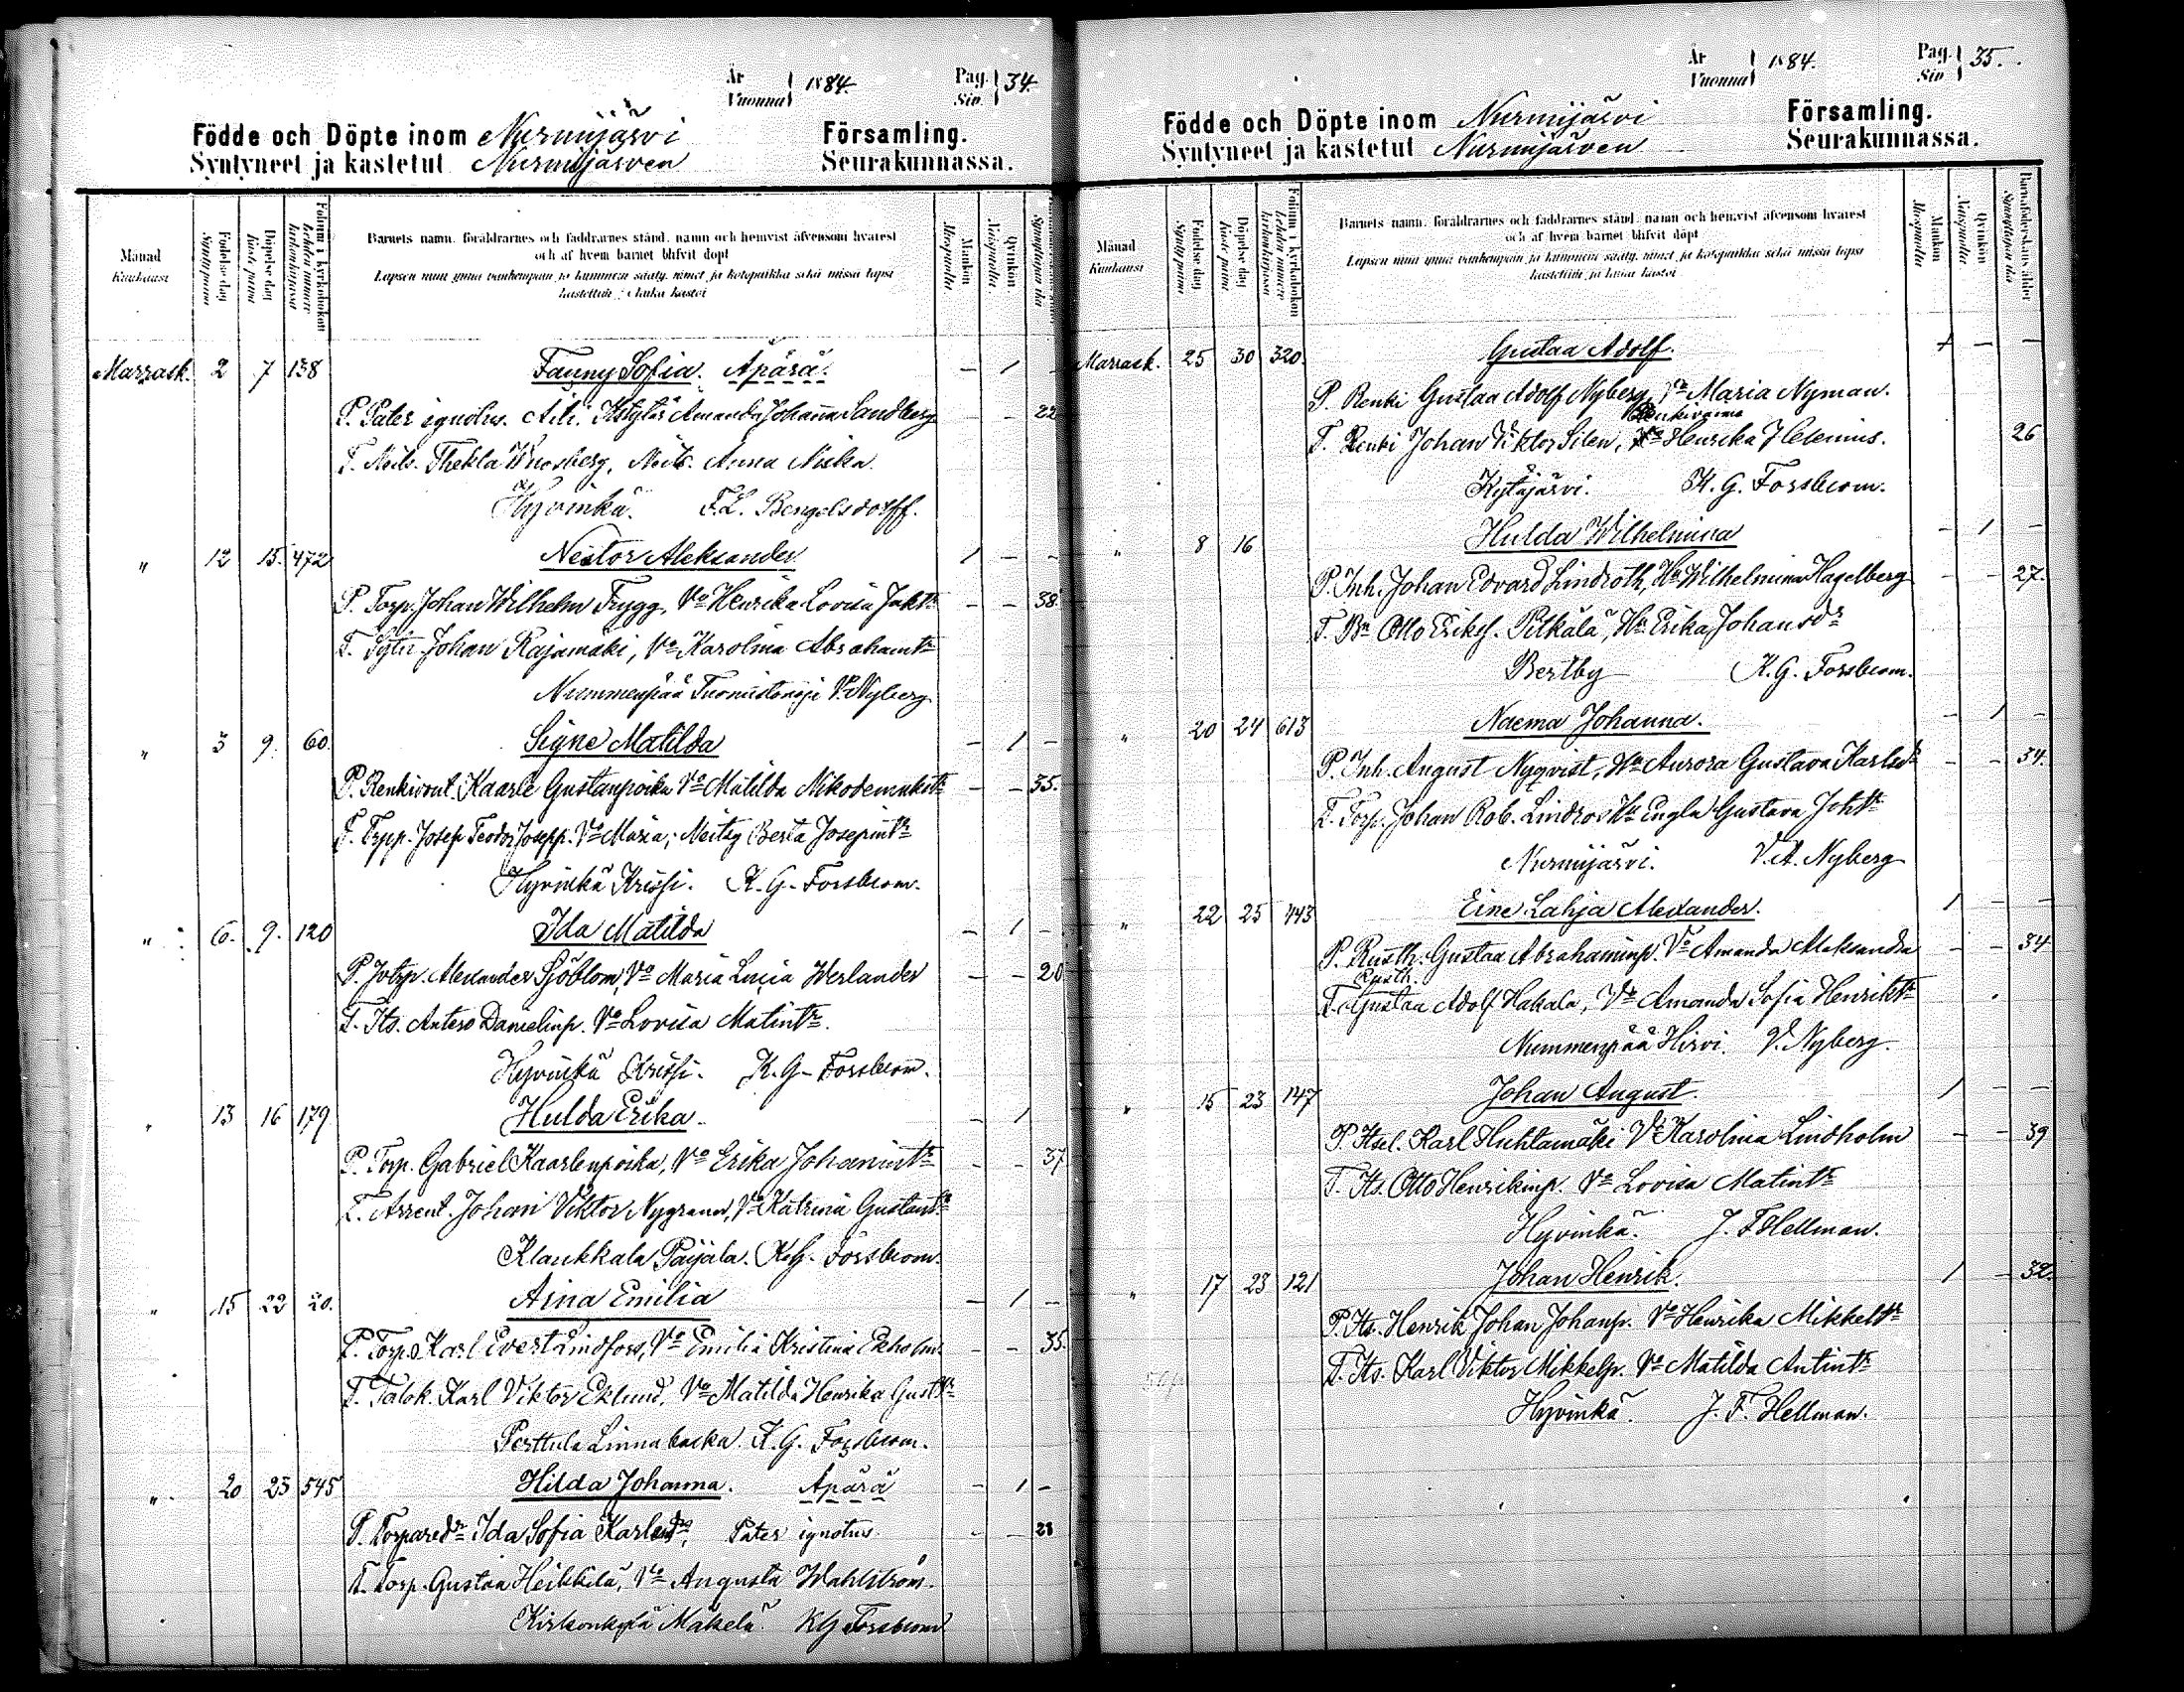 År
Vuonna 1884.
Pag.
Siv. 34.
Födde och Döpte inom Nurmijärvi Församling.
Syntyneet ja kastetut Nurmijärven Seurakunnassa.
Månad
Kuukausi
Födelse dag
Synty päivä
Döpelse dag
Kaste päivä
Folium i kyrkoboken
Lehden numero kirkonkirjassa
Barnets namn, föräldrarnes och faddrarnes stånd, namn och hemvist äfvensom hvarest
och af hvem barnet blifvit döpt
Lapsen nimi ynnä vanhempain ja kummein sääty, nimet ja kotopaikka sekä missä lapsi
kastettiin ja kuka kastoi
Mankön
Miespuolia
Qvinkön
Naispuolia
Synnyttäjän ikä
Marrask. 2 7 138 Fanny Sofia. Äpärä. — 1 —
P. Pater ignotus. Äiti: Itstytär Amanda Johanna Sandberg — — 22
F. Neits. Thekla Wuosberg, Neits. Anna Niska.
Hyvinkä. F.L. Bengelsdorff.
" 12 15. 472 Nestor Aleksander 1 — —
P. Torp. Johan Wilhelm Trygg, Vo Henrika Lovisa Jaktr — — 38.
F. Johan Rajamäki, Vo Karolina Abrahamtr
Nummenpää Tuomistonoja V. Nyberg
" 5 9. 60. Signe Matilda — 1 —
P. Renkivout. Kaarle Gustanpoika Vo Matilda Nikodemuksтr — — 35.
F. Trpp. Josep Teodor Josepp. Vo Maria, Neitsy Berta Josepintr
Hyvinkä Krissi. K.G. Forsbom.
" 6. 9. 120 Ida Matilda — 1 —
P. Alexander Sjöblom, Vo Maria Lucia Werlander — — 20
F. Its. Antero Danielinp. Vo Lovisa Matintr.
Hyvinkä Krissi. K.G. Forsbom.
" 13 16 179 Hulda Erika — 1
P. Torp. Gabriel Kaarlenpoika, Vo Erika Johanintr — — 37
F. Arrent. Johan Viktor Nygrann, Vo Katrina Gustavtr
Klaukkala Päijälä. K.G. Forsbom.
" 15 22 20. Aina Emilia — 1 —
P. Torp. Karl Evert Lindfors, Vo Emilia Kristina Ekholm. — — 35.
F. Talok. Karl Viktor Eklund, Vo Matilda Henrika Gusttr
Perttula Linnabacka. K.G. Forsbom.
" 20 23 545 Hilda Johanna. Äpärä — 1 —
P. Torparedr Ida Sofia Karlsdr, Pater ignotus — — 28
F. Torp. Gustaa Heikkilä, Vo Augusta Wahlström.
Kirkonkylä Mäkelä. KG Forsbom
År
Vuonna 1884.
Pag.
Siv. 35.
Födde och Döpte inom Nurmijärvi Församling.
Syntyneet ja kastetut Nurmijärven Seurakunnassa.
Månad
Kuukausi
Födelse dag
Synty päivä
Döpelse dag
Kaste päivä
Folium i kyrkoboken
Lehden numero kirkonkirjassa
Barnets namn, föräldrarnes och faddrarnes stånd, namn och hemvist äfvensom hvarest
och af hvem barnet blifvit döpt
Lapsen nimi ynnä vanhempain ja kummein sääty, nimet ja kotopaikka sekä missä lapsi
kastettiin ja kuka kastoi
Mankön
Miespuolia
Qvinkön
Naispuolia
Barnaföderskans ålder
Synnyttäjän ikä
Marrask. 25 30 320. Gustaa Adolf. 1 — —
P. Renki Gustaa Adolf Nyberg, Vo Maria Nyman.
Renkivaimo
F. Renki Johan Viktor Silen, Henrika Helenius. 26
Kytäjärvi. K.G. Forsbom.
" 8 16 Hulda Wilhelmina — 1 —
P. Inh. Johan Edvard Lindroth, Hu Wilhelmina Hagelberg — — 27.
F. Bn Otto Eriks. Pilkälä, Hu Erika Johansdr
Bertby K.G. Forsbom.
" 20 24 613 Naema Johanna. — 1 —
P. Inh. August Nyqvist, Hu Aurora Gustava Karlsdr — — 34.
F. Torp. Johan Rob. Lindros Hu Engla Gustava Johtr
Nurmijärvi. V.A. Nyberg
" 22 25 443 Eine Lahja Alexander. 1 — —
P. Rusth. Gustaa Abrahaminp. Vo Amanda Aleksandra — — 34
Rusth.
F. Gustaa Adolf Hakala, Vo Amanda Sofia Henriktr
Nummenpää Hirvi. V. Nyberg.
" 15 23 147 Johan August. 1 — —
P. Itsel. Karl Huhtamäki Vo Karolina Lindholm — — 39
F. Its. Otto Henrikinp. Vo Lovisa Matintr
Hyvinkä. J. F. Hellman.
" 17 23 121 Johan Henrik. 1 — 32.
P. Its. Henrik Johan Johanp. Vo Henrika Mikkeltr
F. Its. Karl Viktor Mikkelp. Vo Matilda Antintr
Hyvinkä. J. F. Hellman.